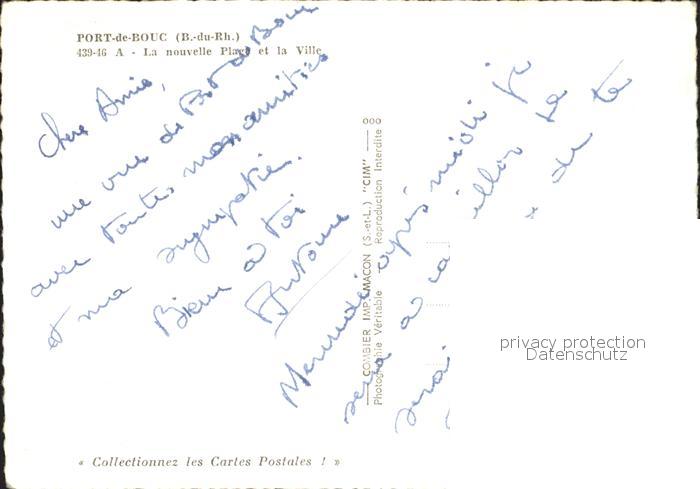 PORT-de-BOUC (B.-du-Rh.)
439-46 A - La nouvelle Plage et la Ville
Chère Amie,
une vue de Port de Bouc
avec toutes mes amitiés
et ma sympathie.
Bien à toi
Antoine
Mercredi après midi je
serai à
serai
de ta
COMBIER IMP. MACON (S.-et-L.) "CIM"
Photographie Véritable Reproduction Interdite
privacy protection
Datenschutz
« Collectionnez les Cartes Postales ! »